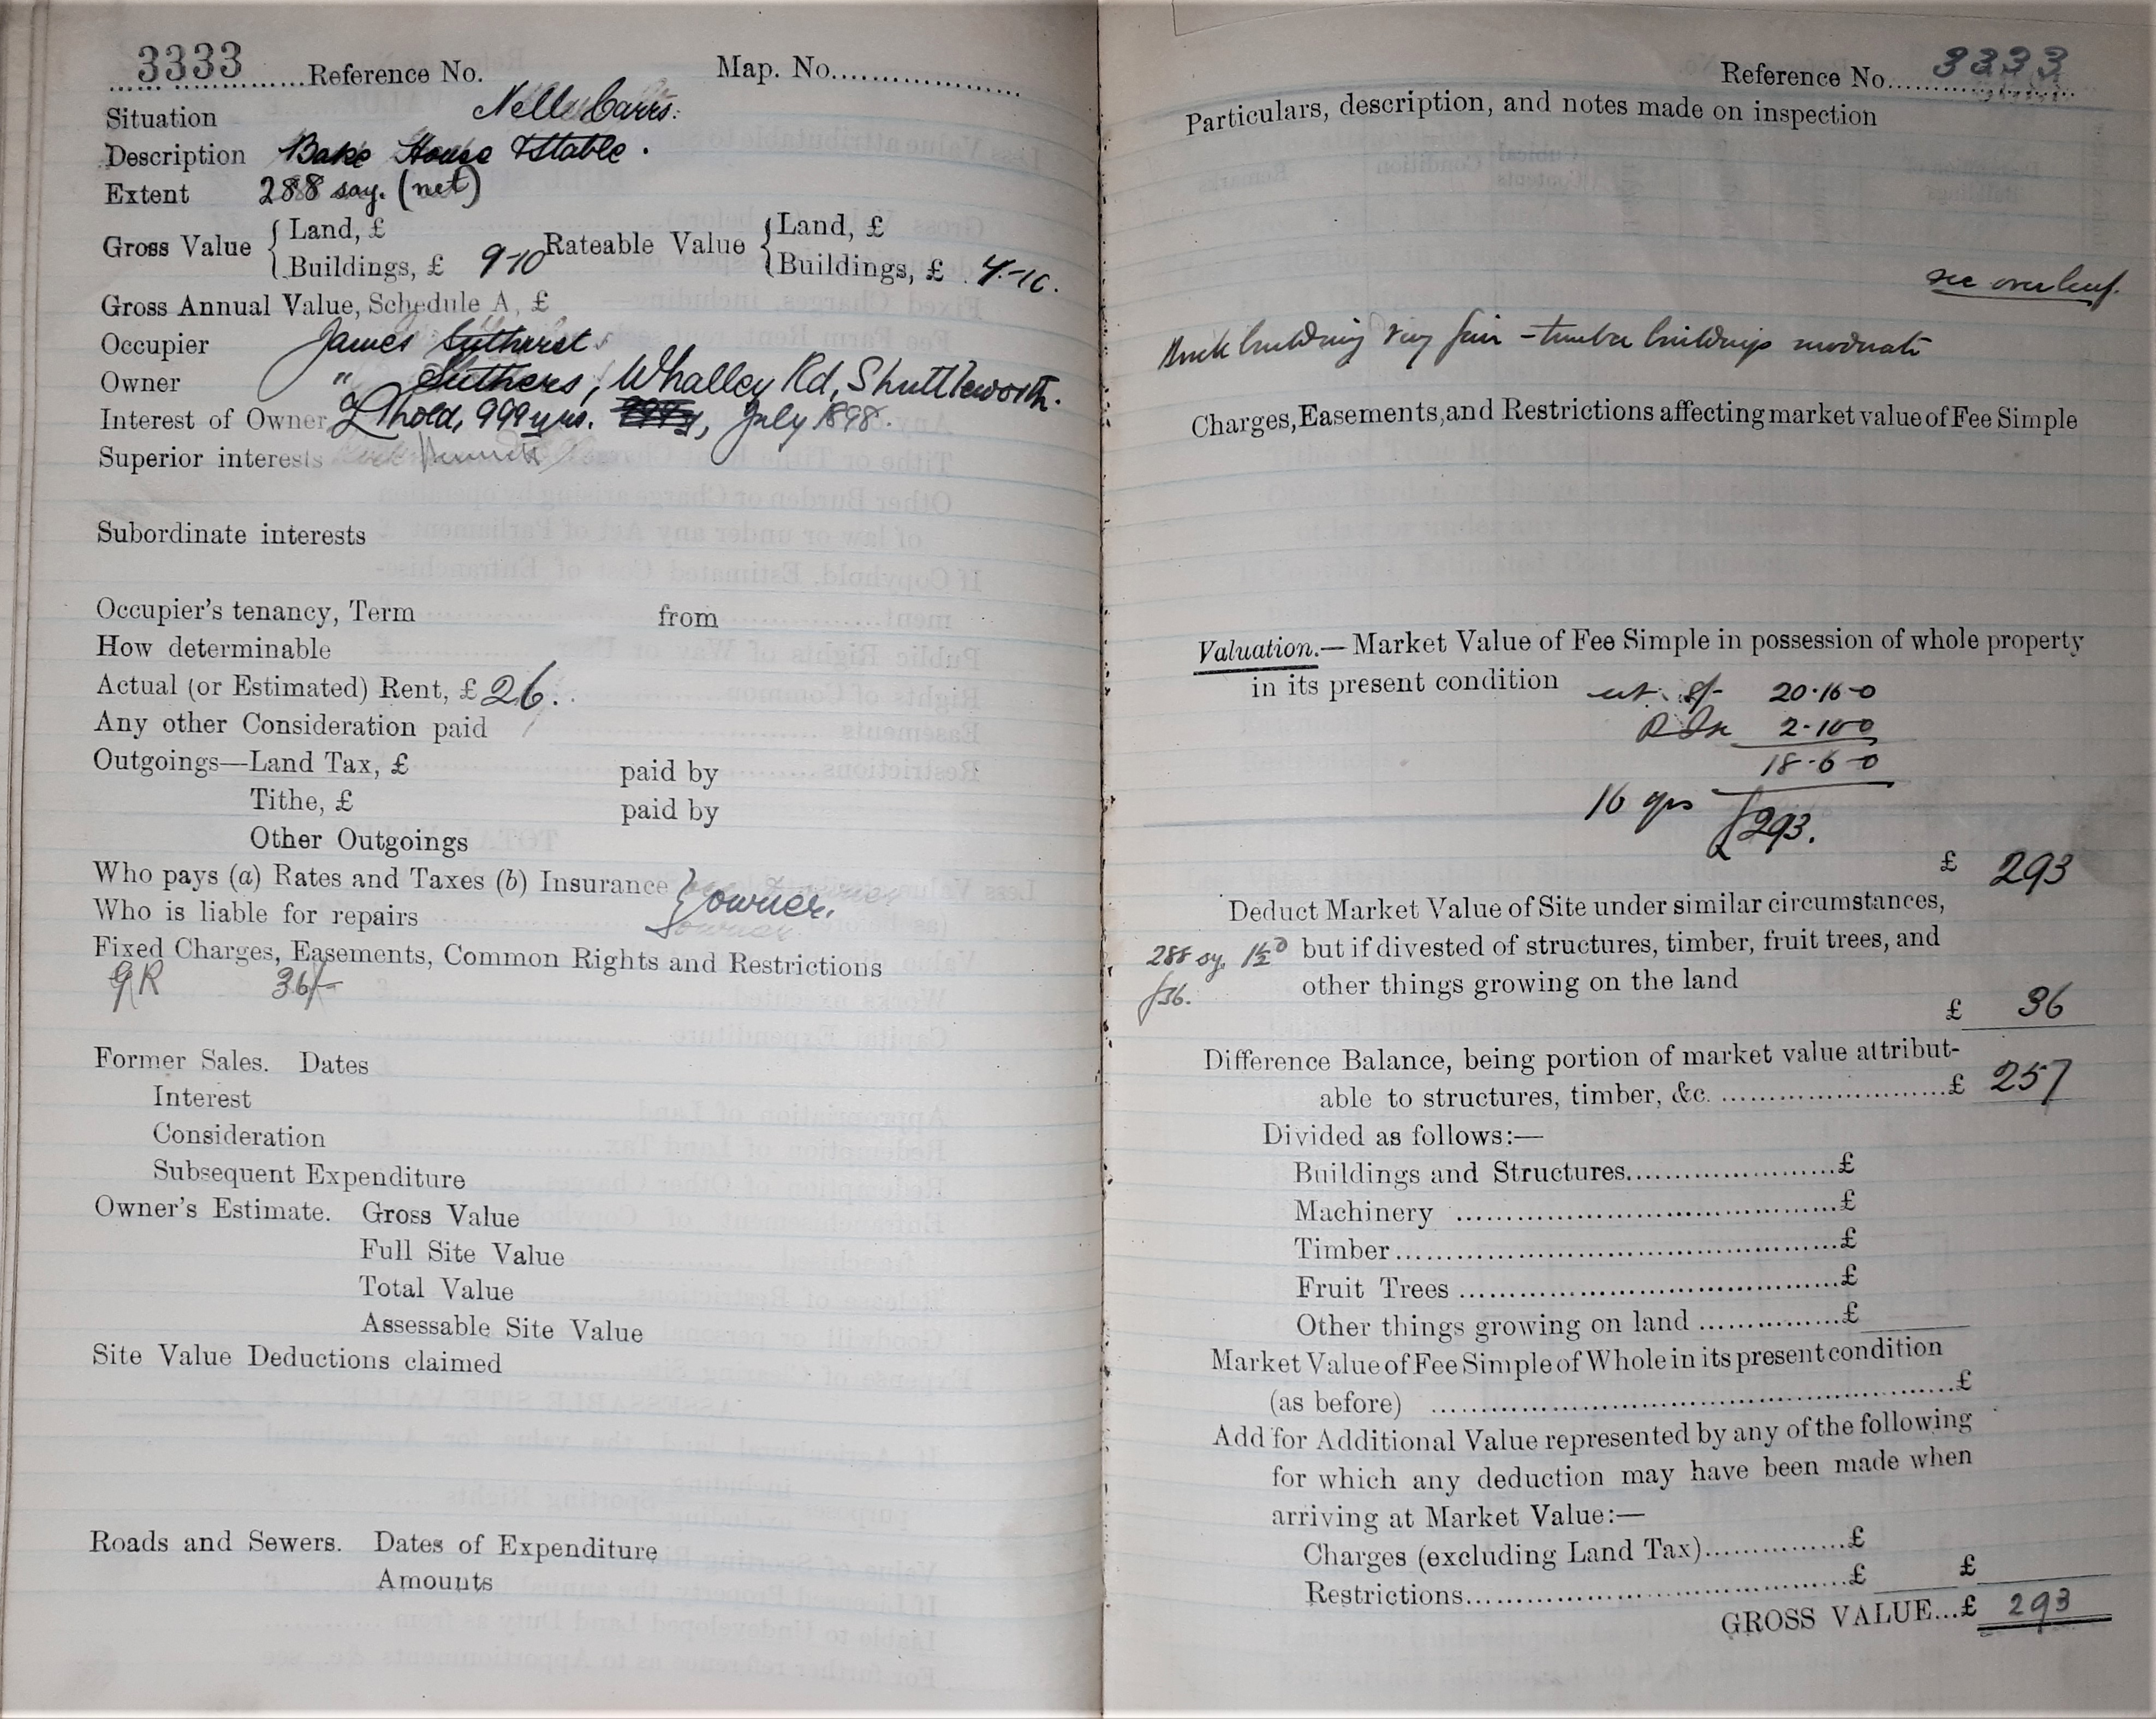 3333 Reference No. Map. No.
Situation Nelly Carrs.
Description Bake House & Stable.
Extent 288 sqy. (net)
Gross Value { Land, £ Rateable Value { Land, £
Buildings, £ 9-10 Buildings, £ 4-10.
Gross Annual Value, Schedule A, £
Occupier James
Owner " Suthers, Whalley Rd, Shuttleworth.
Interest of Owner L'hold, 999 yrs. July 1898.
Superior interests
Subordinate interests
Occupier's tenancy, Term from
How determinable
Actual (or Estimated) Rent, £ 26.
Any other Consideration paid
Outgoings—Land Tax, £ paid by
Tithe, £ paid by
Other Outgoings
Who pays (a) Rates and Taxes (b) Insurance } owner.
Who is liable for repairs
Fixed Charges, Easements, Common Rights and Restrictions
GR 36/-
Former Sales. Dates
Interest
Consideration
Subsequent Expenditure
Owner's Estimate. Gross Value
Full Site Value
Total Value
Assessable Site Value
Site Value Deductions claimed
Roads and Sewers. Dates of Expenditure
Amounts
Reference No. 3333
Particulars, description, and notes made on inspection
see overleaf.
Brick building very fair - timber buildings moderate
Charges, Easements, and Restrictions affecting market value of Fee Simple
Valuation.— Market Value of Fee Simple in possession of whole property
in its present condition est. 8/- 20-16-0
2-10-0
18-6-0
16 yps £293.
£ 293
Deduct Market Value of Site under similar circumstances,
288 sy. 1½D but if divested of structures, timber, fruit trees, and
£36. other things growing on the land
£ 36
Difference Balance, being portion of market value attribut-
able to structures, timber, &c. £ 257
Divided as follows:—
Buildings and Structures £
Machinery £
Timber £
Fruit Trees £
Other things growing on land £
Market Value of Fee Simple of Whole in its present condition
(as before) £
Add for Additional Value represented by any of the following
for which any deduction may have been made when
arriving at Market Value:—
Charges (excluding Land Tax) £
Restrictions £ £
GROSS VALUE...£ 293